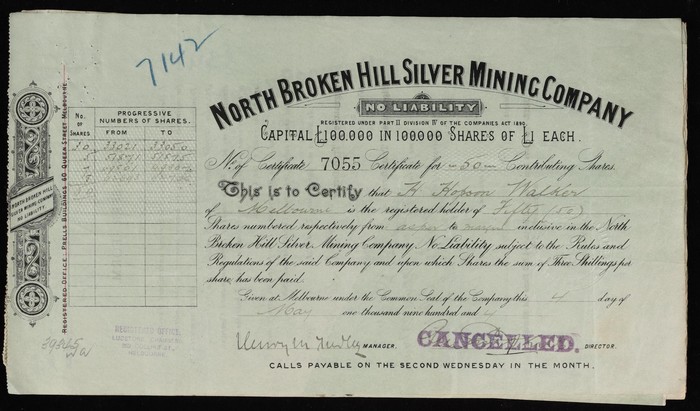 7142
NORTH BROKEN HILL SILVER MINING COMPANY
NO LIABILITY
REGISTERED UNDER PART II DIVISION IV OF THE COMPANIES ACT 1890
CAPITAL £100,000 IN 100,000 SHARES OF £1 EACH.
No. of Certificate 7055 Certificate for 50 Contributing Shares.
This is to Certify that H Robson Walker
of Melbourne is the registered holder of Fifty (50)
Shares numbered respectively from as per to margin inclusive in the North
Broken Hill Silver Mining Company No Liability subject to the Rules and
Regulations of the said Company and upon which Shares the sum of Three Shillings per
share, has been paid.
Given at Melbourne under the Common Seal of the Company this 4 day of
May one thousand nine hundred and 4
MANAGER.
CANCELLED.
DIRECTOR.
CALLS PAYABLE ON THE SECOND WEDNESDAY IN THE MONTH.
No. OF SHARES
PROGRESSIVE NUMBERS OF SHARES.
FROM TO
30 33021 33050
5 51571 51575
NORTH BROKEN HILL
SILVER MINING COMPANY
NO LIABILITY.
REGISTERED OFFICE: PRELLS BUILDINGS 60 QUEEN STREET MELBOURNE
REGISTERED OFFICE: